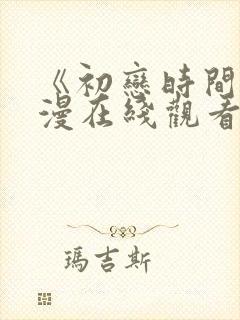 《初戀時間
漫在綫觀看
瑪吉斯